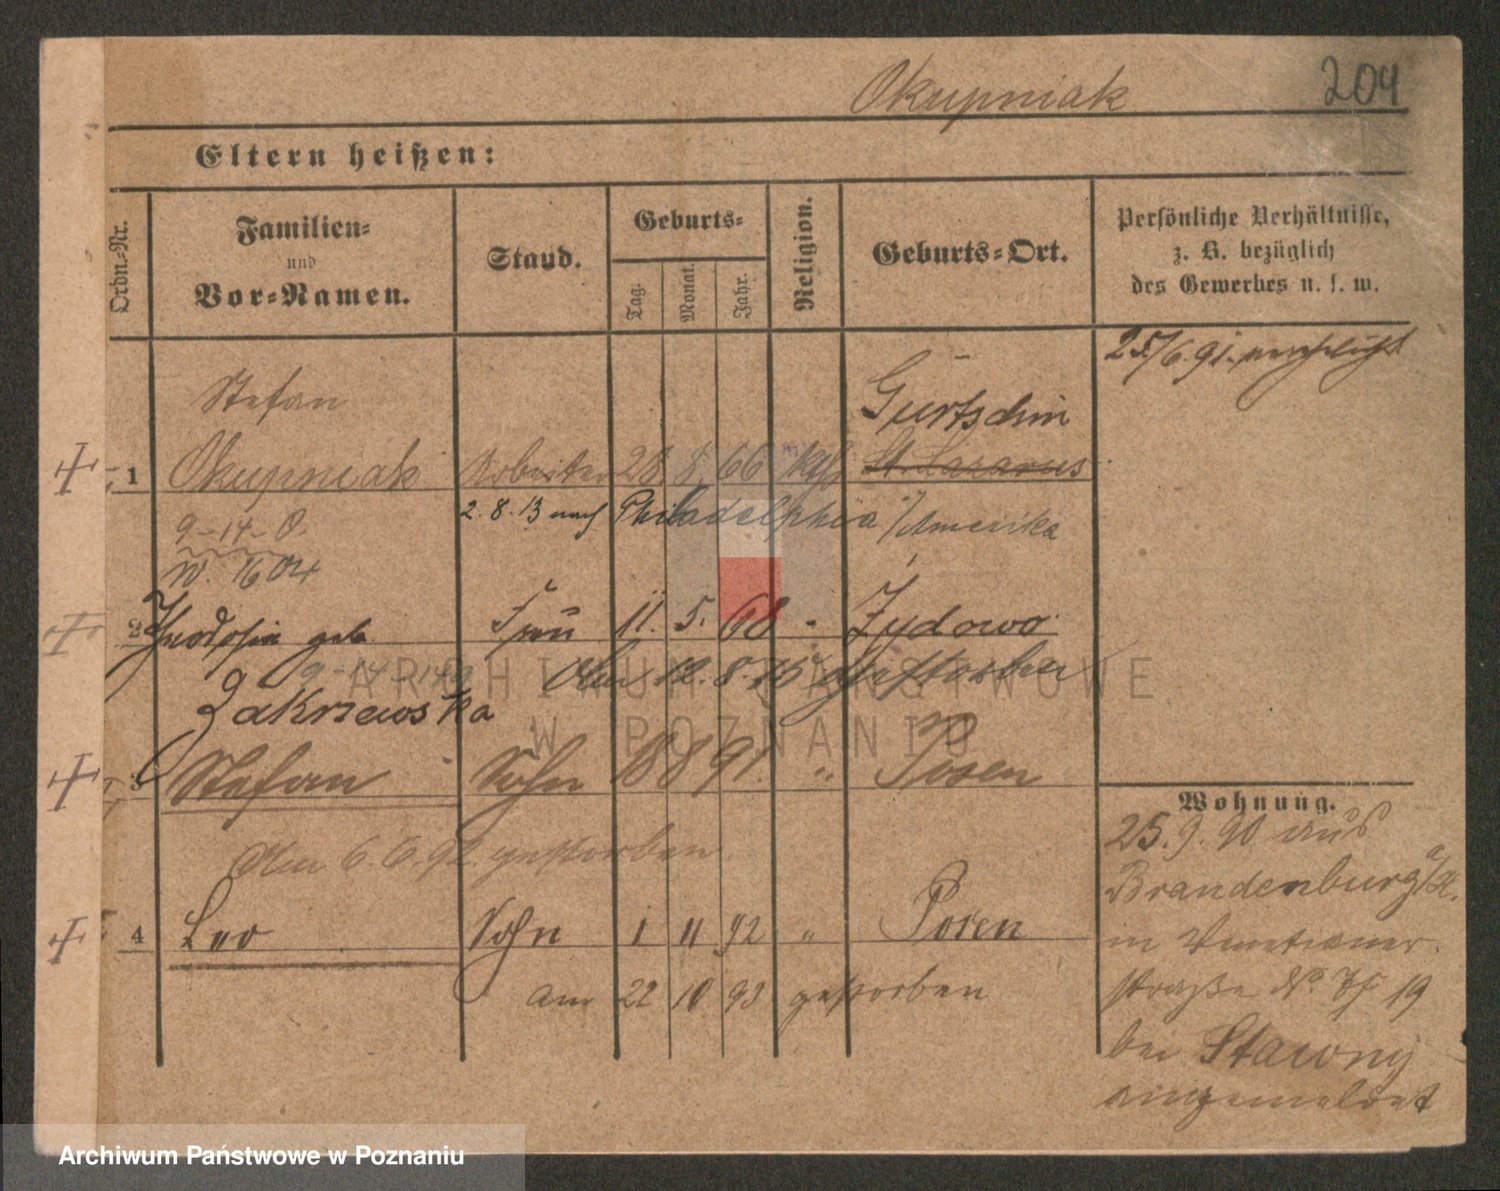 Okupniak
204
Eltern heißen:
Ordn.-Nr.
Familien-
und
Vor-Namen.
Stand.
Geburts-
Tag.
Monat.
Jahr.
Religion.
Geburts-Ort.
Persönliche Verhältnisse,
z. B. bezüglich
des Gewerbes u. s. w.
25/6.91.
Stefan
Gurtschin
1 Okupniak Arbeiter 28. 8. 66 kth St. Lazarus
2. 8. 13 nach Philadelphia /Amerika
9-14-0.
W. 1604
2 Theodosia geb Frau 11. 5. 68 " Żydowo
9-14-149 Am 12. 8. 15 gestorben
Zakrzewska
3 Stefan Sohn 18 8 91. " Posen
Am 6.6.92 gestorben
4 Leo Sohn 1 11 92 " Posen
am 22 10 93 gestorben
Wohnung.
25.9.90 aus
Brandenburg a/H.
in Venetianer-
straße No. 19
bei Stawny
angemeldet
ARCHIWUM PAŃSTWOWE
W POZNANIU
Archiwum Państwowe w Poznaniu